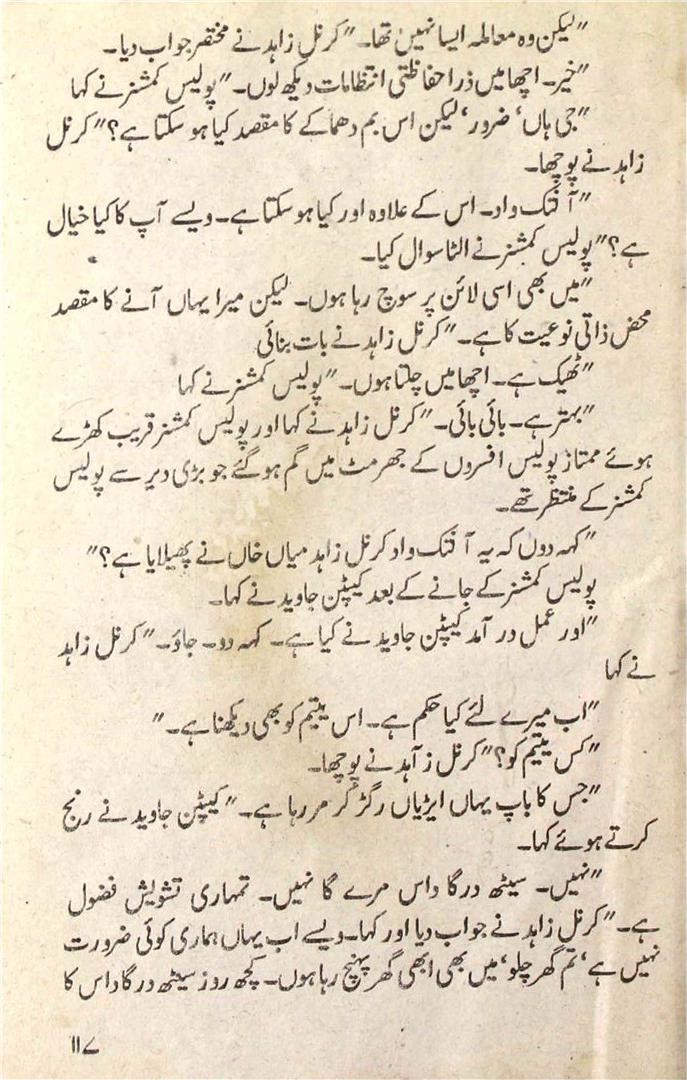 ”لیکن وہ معاملہ ایسا نہیں تھا۔“ کرنل زاہد نے مختصر جواب دیا۔
”خیر۔ اچھا میں ذرا حفاظتی انتظامات دیکھ لوں۔“ پولیس کمشنر نے کہا
”جی ہاں‘ ضرور‘ لیکن اس بم دھماکے کا مقصد کیا ہو سکتا ہے؟“ کرنل
زاہد نے پوچھا۔
”آتنک واد۔ اس کے علاوہ اور کیا ہو سکتا ہے۔ ویسے آپ کا کیا خیال
ہے؟“ پولیس کمشنر نے الٹا سوال کیا۔
”میں بھی اسی لائن پر سوچ رہا ہوں۔ لیکن میرا یہاں آنے کا مقصد
محض ذاتی نوعیت کا ہے۔“ کرنل زاہد نے بات بنائی
”ٹھیک ہے۔ اچھا میں چلتا ہوں۔“ پولیس کمشنر نے کہا
”بہتر ہے۔ بائی بائی۔“ کرنل زاہد نے کہا اور پولیس کمشنر قریب کھڑے
ہوئے ممتاز پولیس افسروں کے جھرمٹ میں گم ہو گئے جو بڑی دیر سے پولیس
کمشنر کے منتظر تھے۔
”کہہ دوں کہ یہ آتنک واد کرنل زاہد میاں خاں نے پھیلایا ہے؟“
پولیس کمشنر کے جانے کے بعد کیپٹن جاوید نے کہا۔
”اور عمل در آمد کیپٹن جاوید نے کیا ہے۔ کہہ دو۔ جاؤ۔“ کرنل زاہد
نے کہا
”اب میرے لئے کیا حکم ہے۔ اس یتیم کو بھی دیکھنا ہے۔“
”کس یتیم کو؟“ کرنل زاہد نے پوچھا۔
”جس کا باپ یہاں ایڑیاں رگڑ کر مر رہا ہے۔“ کیپٹن جاوید نے رنج
کرتے ہوئے کہا۔
”نہیں۔ سیٹھ درگا داس مرے گا نہیں۔ تمہاری تشویش فضول
ہے۔“ کرنل زاہد نے جواب دیا اور کہا۔ ویسے اب یہاں ہماری کوئی ضرورت
نہیں ہے‘ تم گھر چلو‘ میں بھی ابھی گھر پہنچ رہا ہوں۔ کچھ روز سیٹھ درگا داس کا
۱۱۷